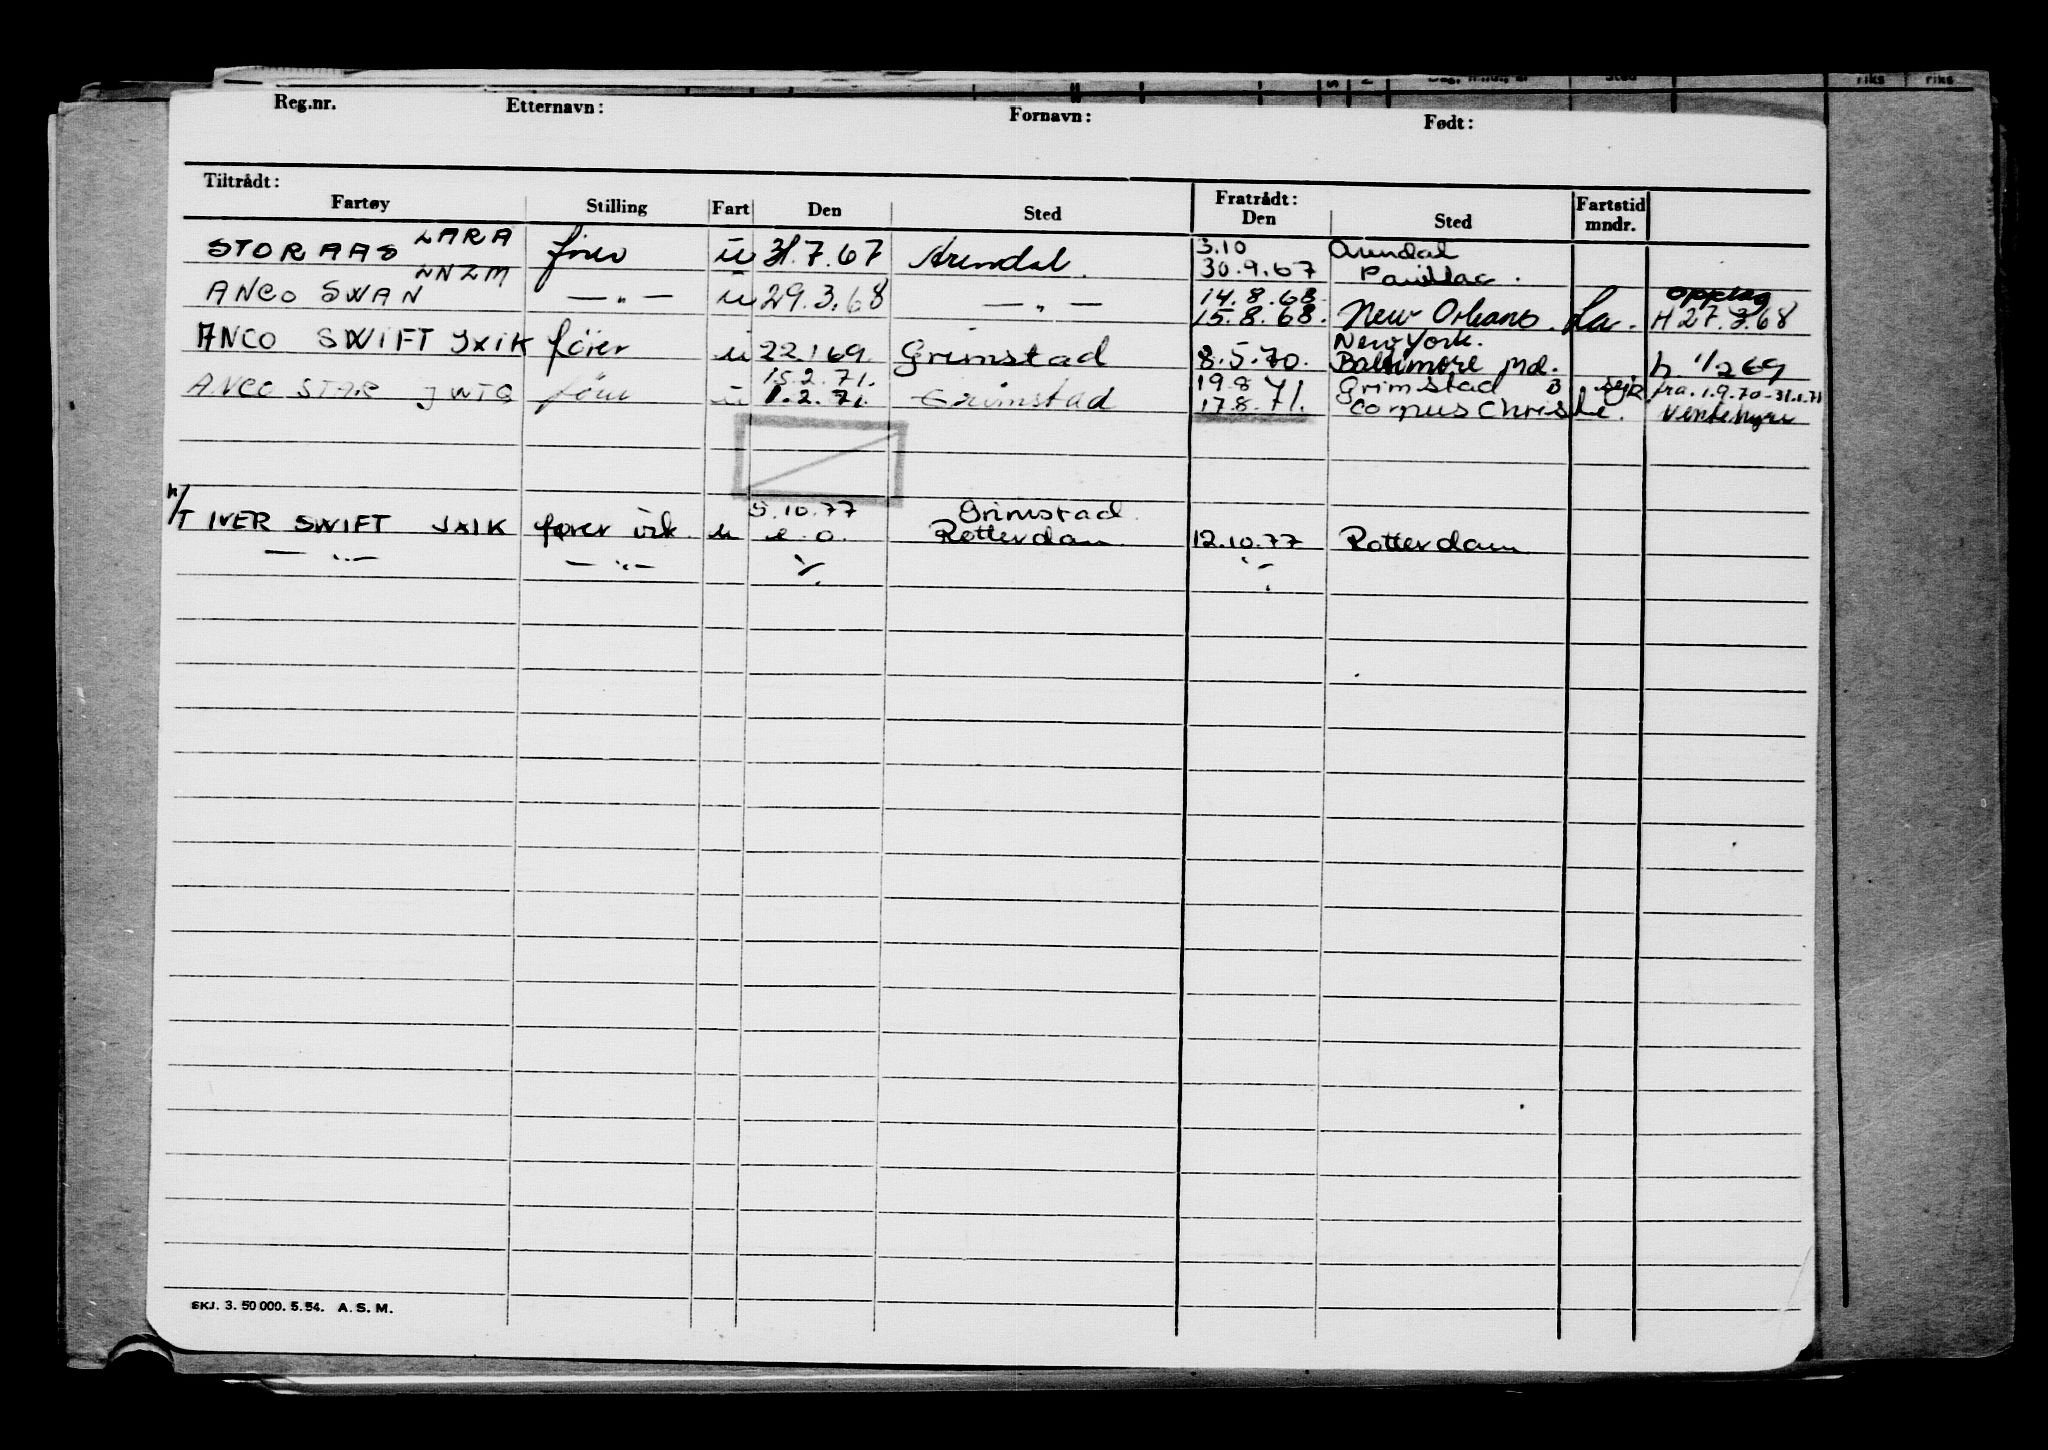 Reg.nr. Etternavn: Fornavn: Født:
Tiltrådt: Fratrådt:
Fartøy Stilling Fart Den Sted Den Sted Fartstid mndr.
STORAAS LARA fører u 31.7.67 Arendal. 3.10 Arendal
30.9.67 Pauillac.
ANCO SWAN LNZM — " — u 29.3.68 — " — 14.8.68 opplag
15.8.68. New Orleans. La. H 27.3.68
ANCO SWIFT JXIK fører u 22.1 69. Grimstad New York.
8.5.70. Baltimore Md. h. 1/2 69
ANCO STAR JWTG fører u 15.2.71. 19.8 71. Grimstad fra. 1.9.70-31.1.71
1.2.71. Grimstad 17.8.71. Corpus Christie. Ventehyre
5.10.77 Grimstad.
M/T IVER SWIFT JXIK fører u e.o. Rotterdam 12.10.77 Rotterdam
— " — — " —
SKJ. 3. 50 000. 5. 54. A. S. M.